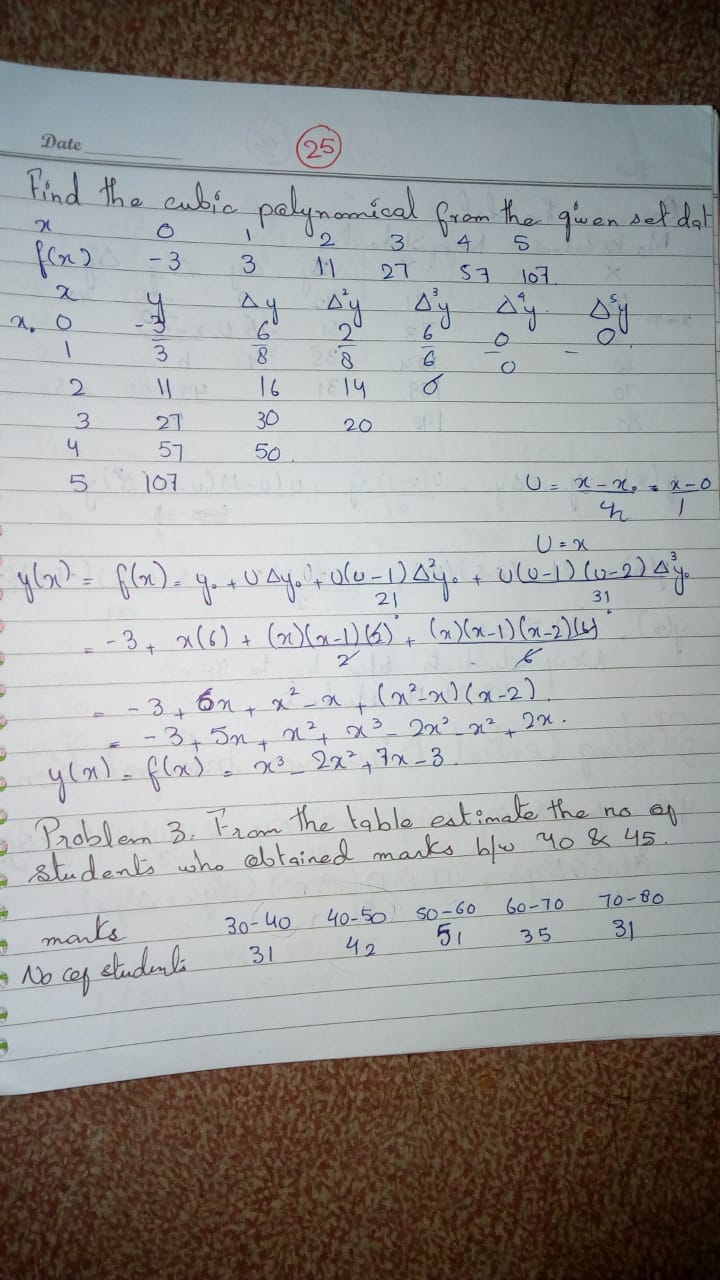 Date
25
Find the cubic polynomical from the given set dat
x 0 1 2 3 4 5
f(x) -3 3 11 27 57 107
x y Δy Δ²y Δ³y Δ⁴y Δ⁵y
x₀ 0 -3 6 2 6 0 0
1 3 8 8 6 0
2 11 16 14 6
3 27 30 20
4 57 50
5 107
U = x - x₀ / h = x - 0 / 1
U = x
y(x) = f(x) = y₀ + UΔy₀ + U(U-1)Δ²y₀ / 2! + U(U-1)(U-2)Δ³y₀ / 3!
= -3 + x(6) + (x)(x-1)(2) / 2 + (x)(x-1)(x-2)(6) / 6
= -3 + 6x + x² - x + (x²-x)(x-2)
= -3 + 5x + x² + x³ - 2x² - x² + 2x.
y(x) = f(x) = x³ - 2x² + 7x - 3.
Problem 3. From the table estimate the no of
students who obtained marks b/w 40 & 45.
marks 30-40 40-50 50-60 60-70 70-80
No of students 31 42 51 35 31